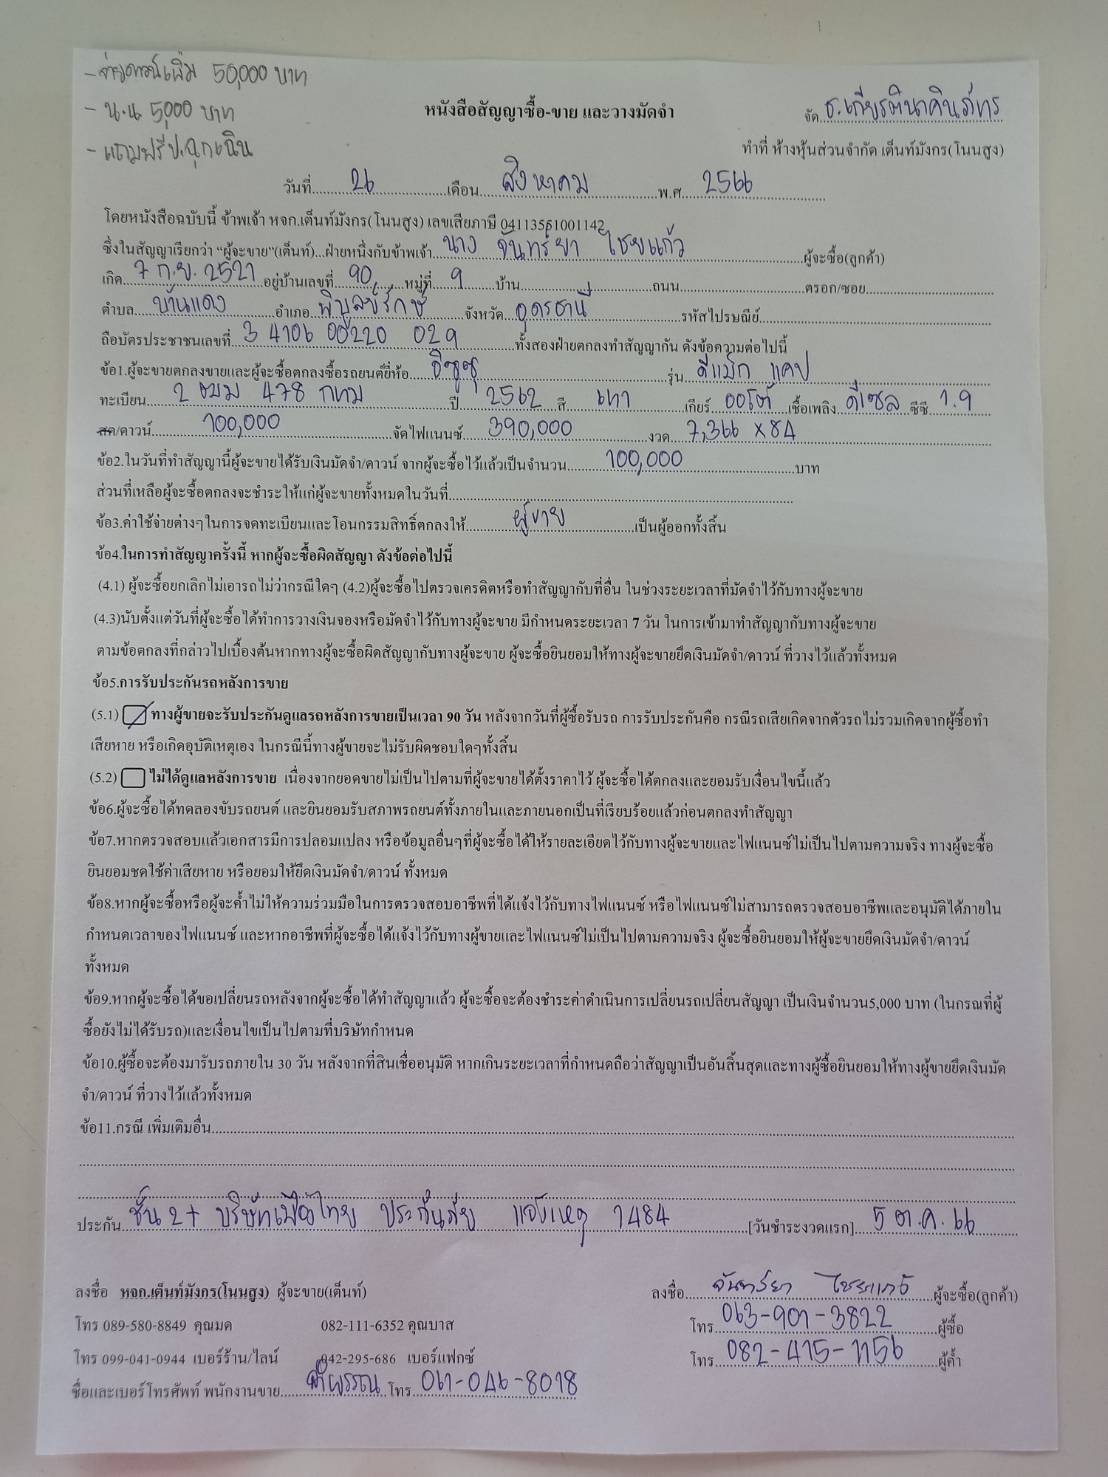 - จ่ายดาวน์เพิ่ม 50,000 บาท
- น.น 5,000 บาท
- แถมฟรีป.ฉุกเฉิน
หนังสือสัญญาซื้อ-ขาย และวางมัดจำ
จัด ธ.เกียรตินาคินภัทร
ทำที่ ห้างหุ้นส่วนจำกัด เต็นท์มังกร(โนนสูง)
วันที่ 26 เดือน สิงหาคม พ.ศ. 2566
โดยหนังสือฉบับนี้ ข้าพเจ้า หจก.เต็นท์มังกร(โนนสูง) เลขเสียภาษี 04113561001142
ซึ่งในสัญญาเรียกว่า "ผู้จะขาย"(เต็นท์)...ฝ่ายหนึ่งกับข้าพเจ้า นาง จันทร์ยา ไชยแก้ว ผู้จะซื้อ(ลูกค้า)
เกิด 7 ก.ย. 2521 อยู่บ้านเลขที่ 90 หมู่ที่ 9 บ้าน ถนน ตรอก/ซอย
ตำบล บ้านแดง อำเภอ พิบูลย์รักษ์ จังหวัด อุดรธานี รหัสไปรษณีย์
ถือบัตรประชาชนเลขที่ 3 4106 00220 029 ทั้งสองฝ่ายตกลงทำสัญญากัน ดังข้อความต่อไปนี้
ข้อ1.ผู้จะขายตกลงขายและผู้จะซื้อตกลงซื้อรถยนต์ยี่ห้อ อีซูซุ รุ่น ดีแม็ก แคป
ทะเบียน 2 ฒฆ 478 กทม ปี 2562 สี เทา เกียร์ ออโต้ เชื้อเพลิง ดีเซล ซีซี 1.9
สด/ดาวน์ 100,000 จัดไฟแนนซ์ 390,000 งวด 7,366 x 84
ข้อ2.ในวันที่ทำสัญญานี้ผู้จะขายได้รับเงินมัดจำ/ดาวน์ จากผู้จะซื้อไว้แล้วเป็นจำนวน 100,000 บาท
ส่วนที่เหลือผู้จะซื้อตกลงจะชำระให้แก่ผู้จะขายทั้งหมดในวันที่
ข้อ3.ค่าใช้จ่ายต่างๆในการจดทะเบียนและโอนกรรมสิทธิ์ตกลงให้ ผู้ขาย เป็นผู้ออกทั้งสิ้น
ข้อ4.ในการทำสัญญาครั้งนี้ หากผู้จะซื้อผิดสัญญา ดังข้อต่อไปนี้
(4.1) ผู้จะซื้อยกเลิกไม่เอารถไม่ว่ากรณีใดๆ (4.2)ผู้จะซื้อไปตรวจเครดิตหรือทำสัญญากับที่อื่น ในช่วงระยะเวลาที่มัดจำไว้กับทางผู้จะขาย
(4.3)นับตั้งแต่วันที่ผู้จะซื้อได้ทำการวางเงินจองหรือมัดจำไว้กับทางผู้จะขาย มีกำหนดระยะเวลา 7 วัน ในการเข้ามาทำสัญญากับทางผู้จะขาย
ตามข้อตกลงที่กล่าวไปเบื้องต้นหากทางผู้จะซื้อผิดสัญญากับทางผู้จะขาย ผู้จะซื้อยินยอมให้ทางผู้จะขายยึดเงินมัดจำ/ดาวน์ ที่วางไว้แล้วทั้งหมด
ข้อ5.การรับประกันรถหลังการขาย
(5.1) ทางผู้ขายจะรับประกันดูแลรถหลังการขายเป็นเวลา 90 วัน หลังจากวันที่ผู้ซื้อรับรถ การรับประกันคือ กรณีรถเสียเกิดจากตัวรถไม่รวมเกิดจากผู้ซื้อทำ
เสียหาย หรือเกิดอุบัติเหตุเอง ในกรณีนี้ทางผู้ขายจะไม่รับผิดชอบใดๆทั้งสิ้น
(5.2) ไม่ได้ดูแลหลังการขาย เนื่องจากยอดขายไม่เป็นไปตามที่ผู้จะขายได้ตั้งราคาไว้ ผู้จะซื้อได้ตกลงและยอมรับเงื่อนไขนี้แล้ว
ข้อ6.ผู้จะซื้อได้ทดลองขับรถยนต์ และยินยอมรับสภาพรถยนต์ทั้งภายในและภายนอกเป็นที่เรียบร้อยแล้วก่อนตกลงทำสัญญา
ข้อ7.หากตรวจสอบแล้วเอกสารมีการปลอมแปลง หรือข้อมูลอื่นๆที่ผู้จะซื้อได้ให้รายละเอียดไว้กับทางผู้จะขายและไฟแนนซ์ไม่เป็นไปตามความจริง ทางผู้จะซื้อ
ยินยอมชดใช้ค่าเสียหาย หรือยอมให้ยึดเงินมัดจำ/ดาวน์ ทั้งหมด
ข้อ8.หากผู้จะซื้อหรือผู้จะค้ำไม่ให้ความร่วมมือในการตรวจสอบอาชีพที่ได้แจ้งไว้กับทางไฟแนนซ์ หรือไฟแนนซ์ไม่สามารถตรวจสอบอาชีพและอนุมัติได้ภายใน
กำหนดเวลาของไฟแนนซ์ และหากอาชีพที่ผู้จะซื้อได้แจ้งไว้กับทางผู้ขายและไฟแนนซ์ไม่เป็นไปตามความจริง ผู้จะซื้อยินยอมให้ผู้จะขายยึดเงินมัดจำ/ดาวน์
ทั้งหมด
ข้อ9.หากผู้จะซื้อได้ขอเปลี่ยนรถหลังจากผู้จะซื้อได้ทำสัญญาแล้ว ผู้จะซื้อจะต้องชำระค่าดำเนินการเปลี่ยนรถเปลี่ยนสัญญา เป็นเงินจำนวน5,000 บาท (ในกรณที่ผู้
ซื้อยังไม่ได้รับรถ)และเงื่อนไขเป็นไปตามที่บริษัทกำหนด
ข้อ10.ผู้ซื้อจะต้องมารับรถภายใน 30 วัน หลังจากที่สินเชื่ออนุมัติ หากเกินระยะเวลาที่กำหนดถือว่าสัญญาเป็นอันสิ้นสุดและทางผู้ซื้อยินยอมให้ทางผู้ขายยึดเงินมัด
จำ/ดาวน์ ที่วางไว้แล้วทั้งหมด
ข้อ11.กรณี เพิ่มเติมอื่น
ประกัน ชั้น 2+ บริษัทเมืองไทย ประกันภัย แจ้งเหตุ 1484 [วันชำระงวดแรก] 5 ต.ค. 66
ลงชื่อ หจก.เต็นท์มังกร(โนนสูง) ผู้จะขาย(เต็นท์) ลงชื่อ จันทร์ยา ไชยแก้ว ผู้จะซื้อ(ลูกค้า)
โทร 089-580-8849 คุณมด 082-111-6352 คุณบาส โทร 063-901-3822 ผู้ซื้อ
โทร 099-041-0944 เบอร์ร้าน/ไลน์ 042-295-686 เบอร์แฟกซ์ โทร 082-415-1156 ผู้ค้ำ
ชื่อและเบอร์โทรศัพท์ พนักงานขาย โทร 061-046-8018